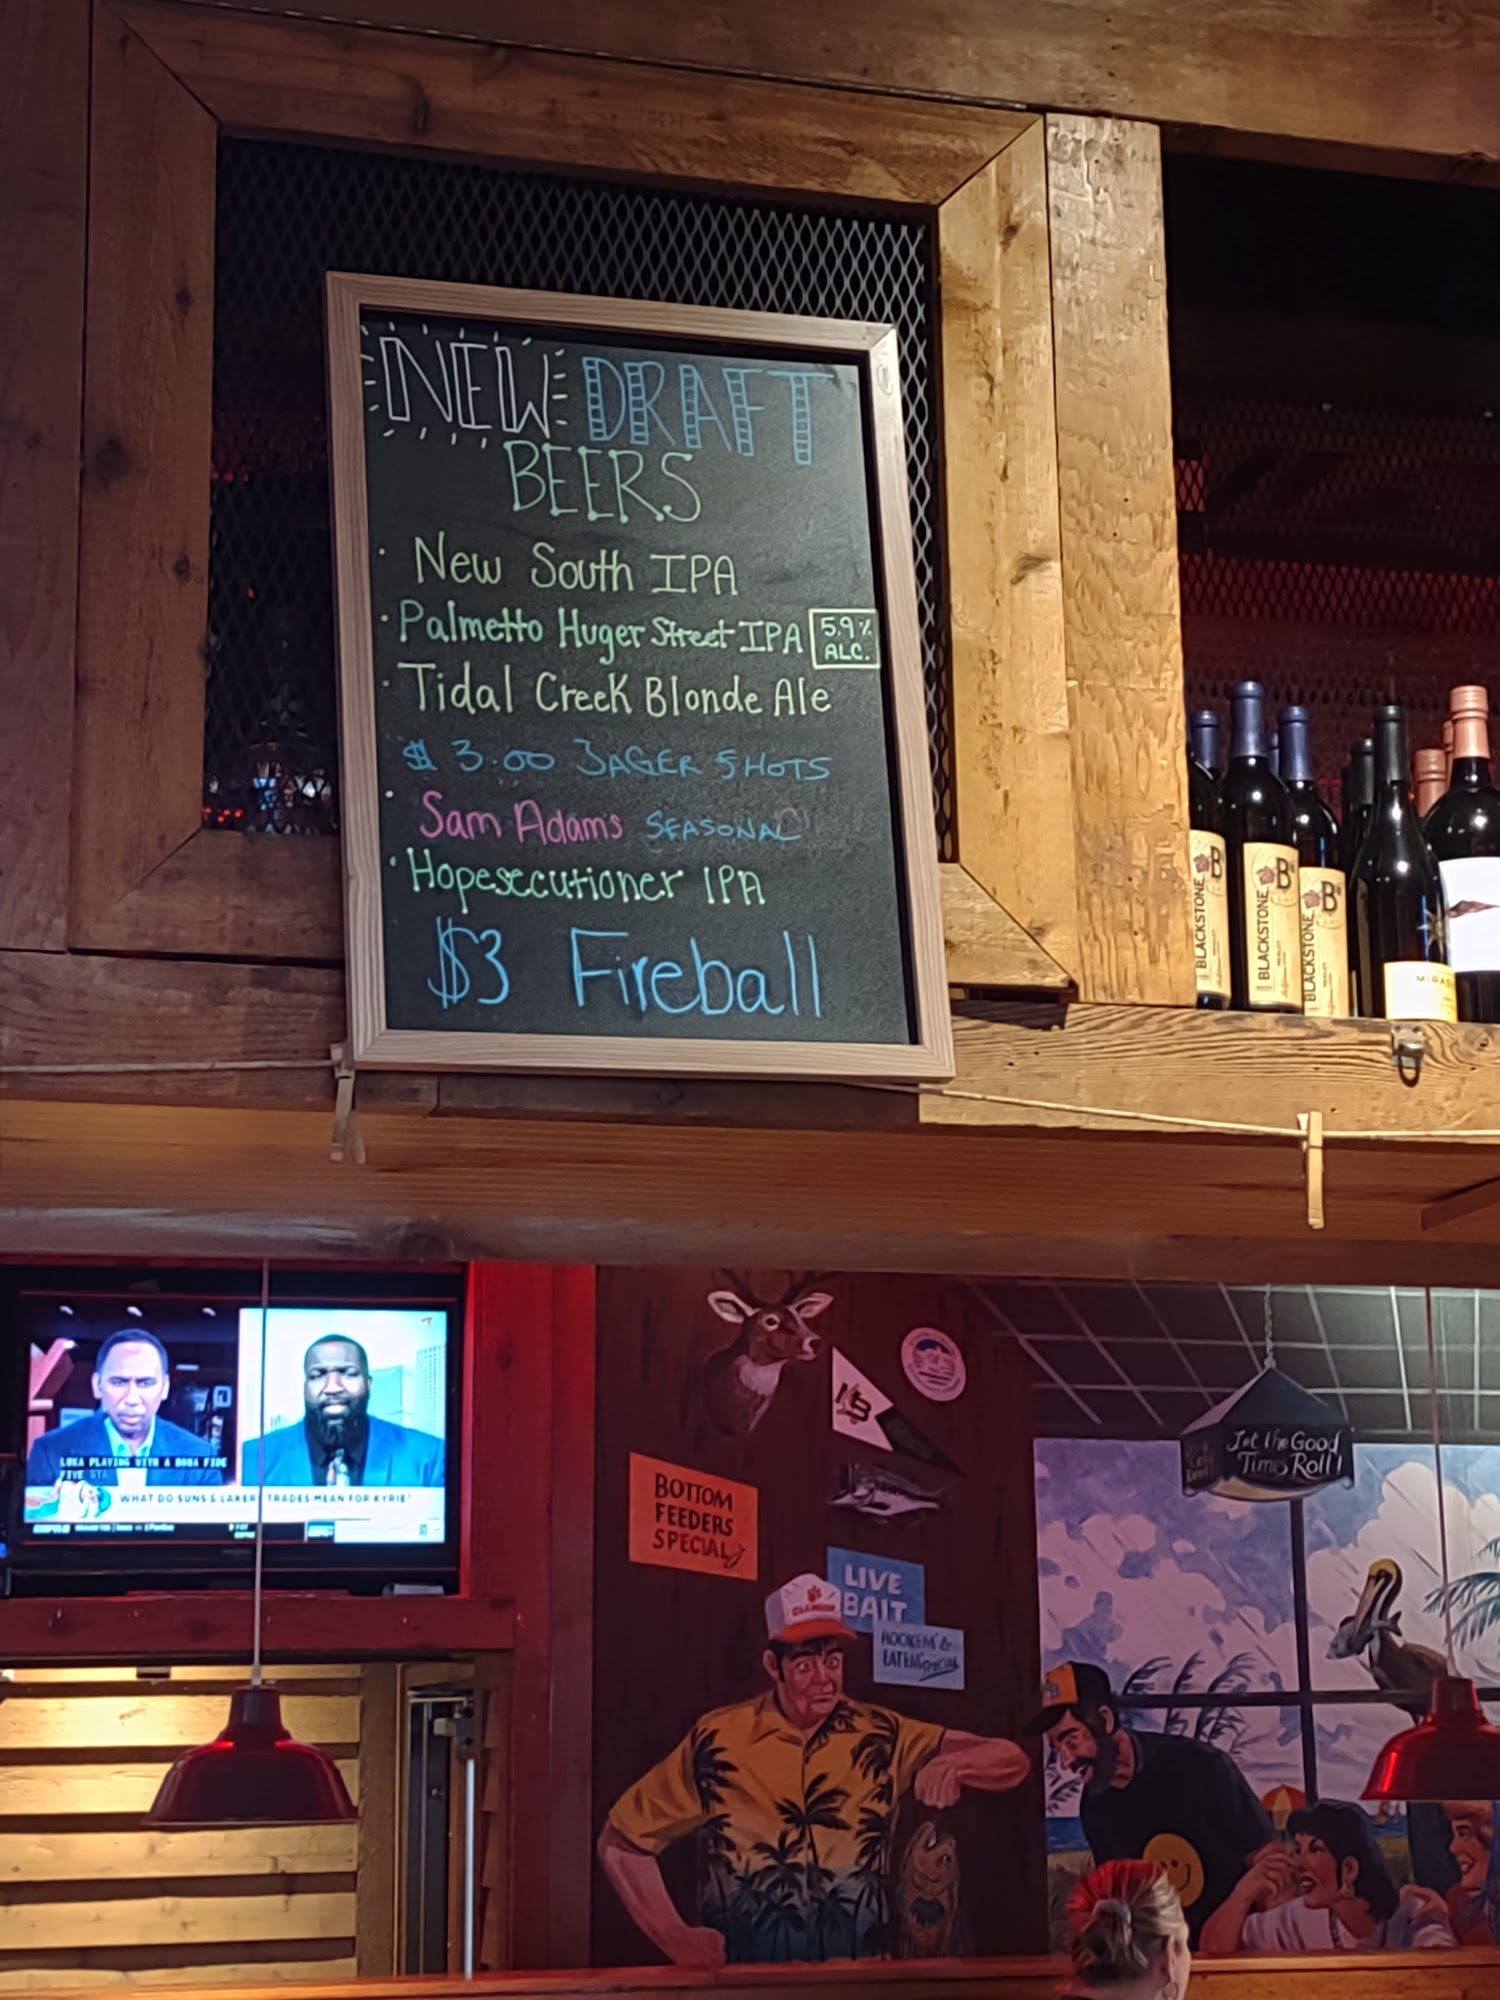 NEW DRAFT
BEERS
· New South IPA
· Palmetto Huger Street IPA 5.9% ALC.
· Tidal Creek Blonde Ale
$3.00 JAGER SHOTS
· Sam Adams SEASONAL
· Hopesecutioner IPA
$3 Fireball
B
BLACKSTONE
B
BLACKSTONE
B
BLACKSTONE
LUKA PLAYING WITH A BONA FIDE
FIVE STA
WHAT DO SUNS & LAKER TRADES MEAN FOR KYRIE?
BOTTOM
FEEDERS
SPECIAL
LIVE
BAIT
HOOKEM' &
EATEM' SPECIAL
Let the Good
Times Roll!